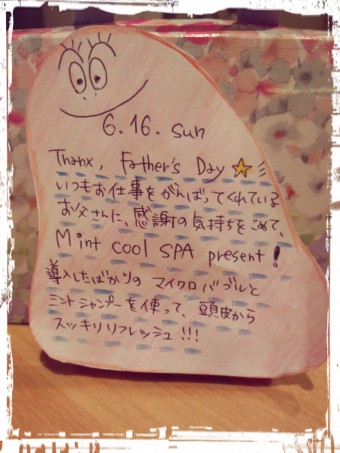 6.16. sun
Thanx, Father's Day
いつもお仕事をがんばってくれている
お父さんに、感謝の気持ちをこめて、
Mint cool SPA present!
導入したばかりの マイクロバブルと
ミントシャンプーを使って、頭皮から
スッキリリフレッシュ!!!